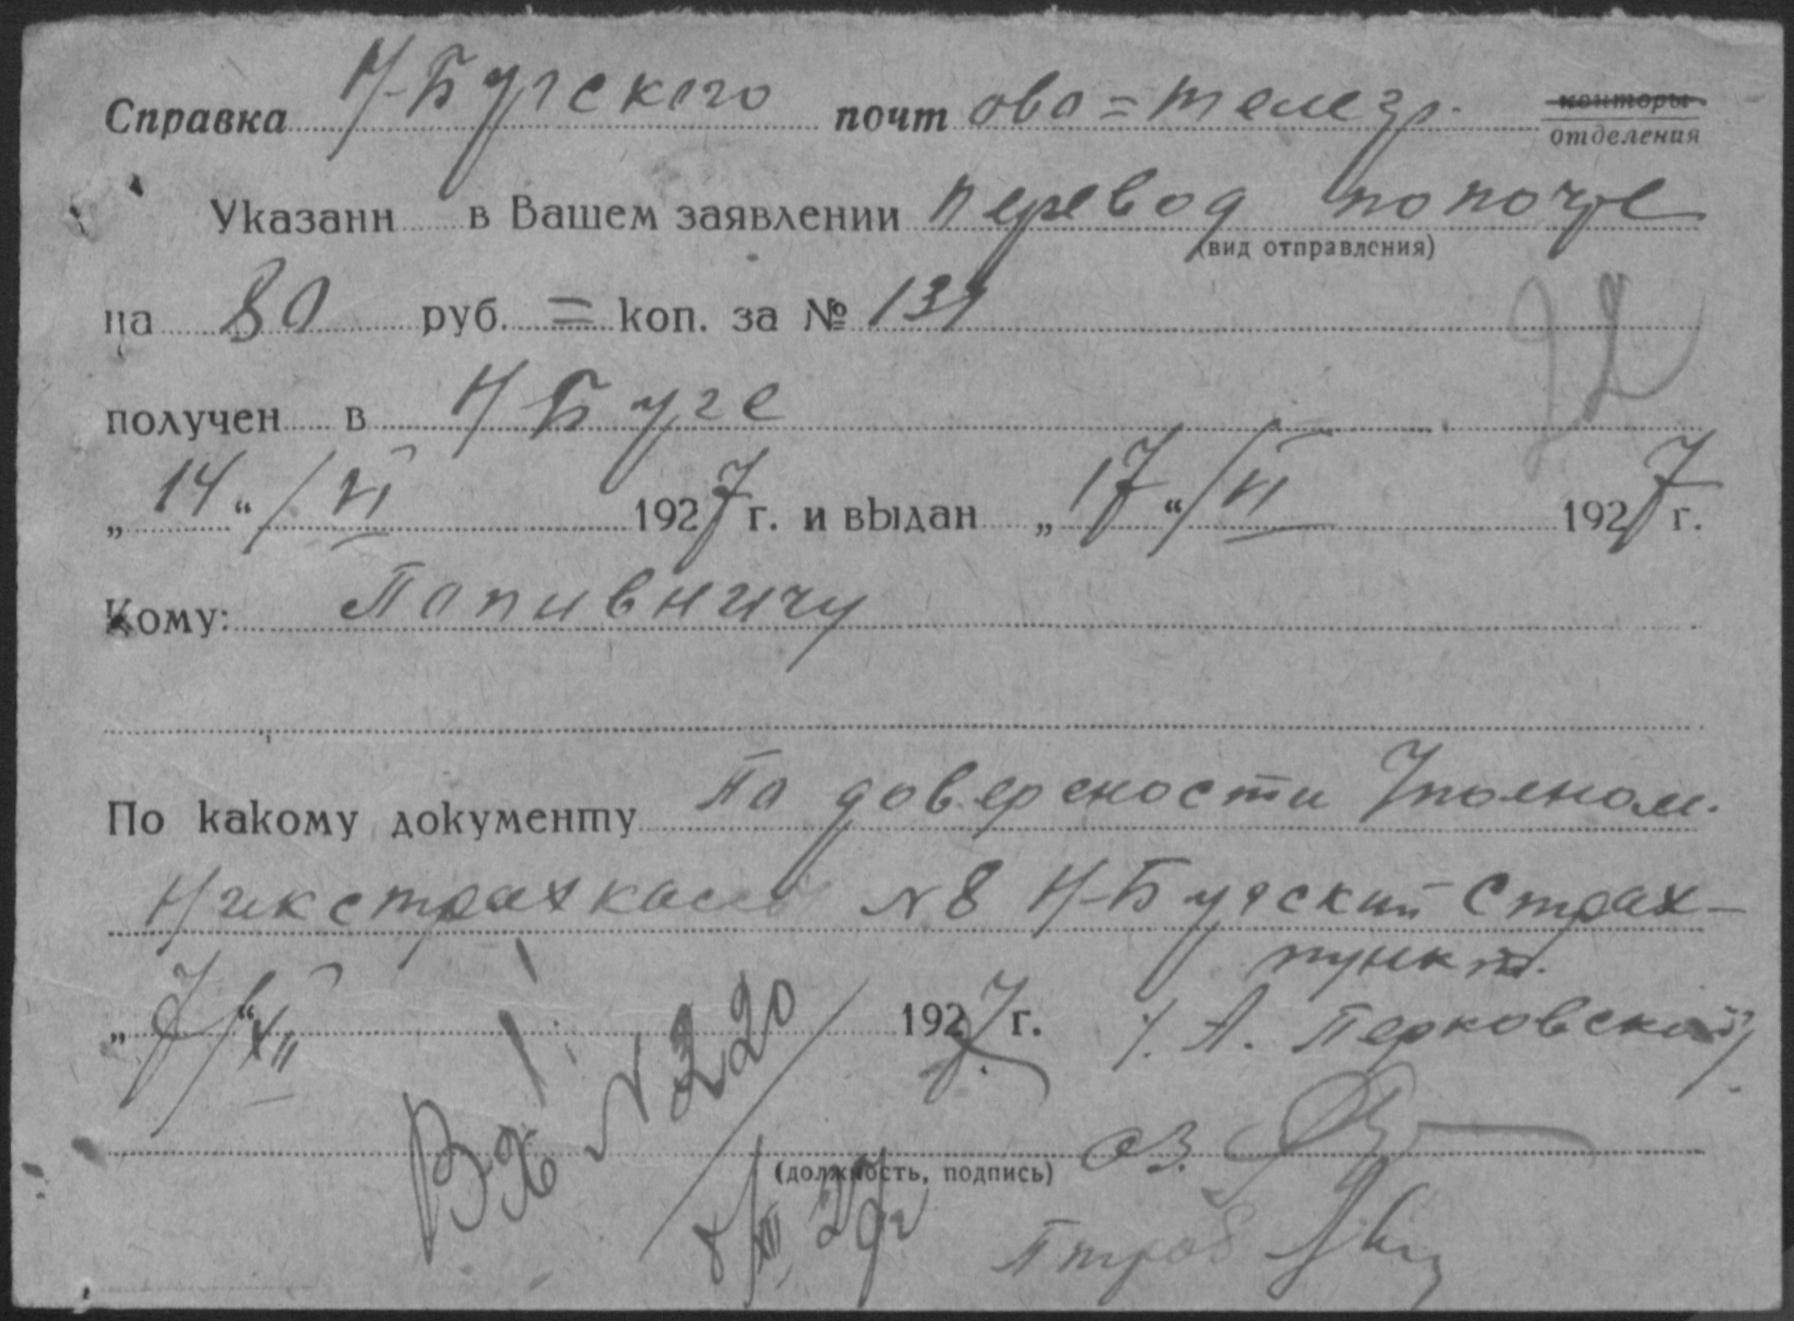 Справка Н-Бугского почтово=телегр. конторы
отделения
Указанн в Вашем заявлении перевод по почте
(вид отправления)
на 80 руб. = коп. за № 134
получен в Н Буге
„14“/VI 1927 г. и выдан „17“/VI 1927 г.
Кому: Папивничу
По какому документу По доверености Уполном.
Никстрахкассы N 8 Н-Бугский Страх-
пункт.
„7“/XII 1927 г. /. А. Перковский/.
(должность, подпись)
Вх N 220
8/XII 27г